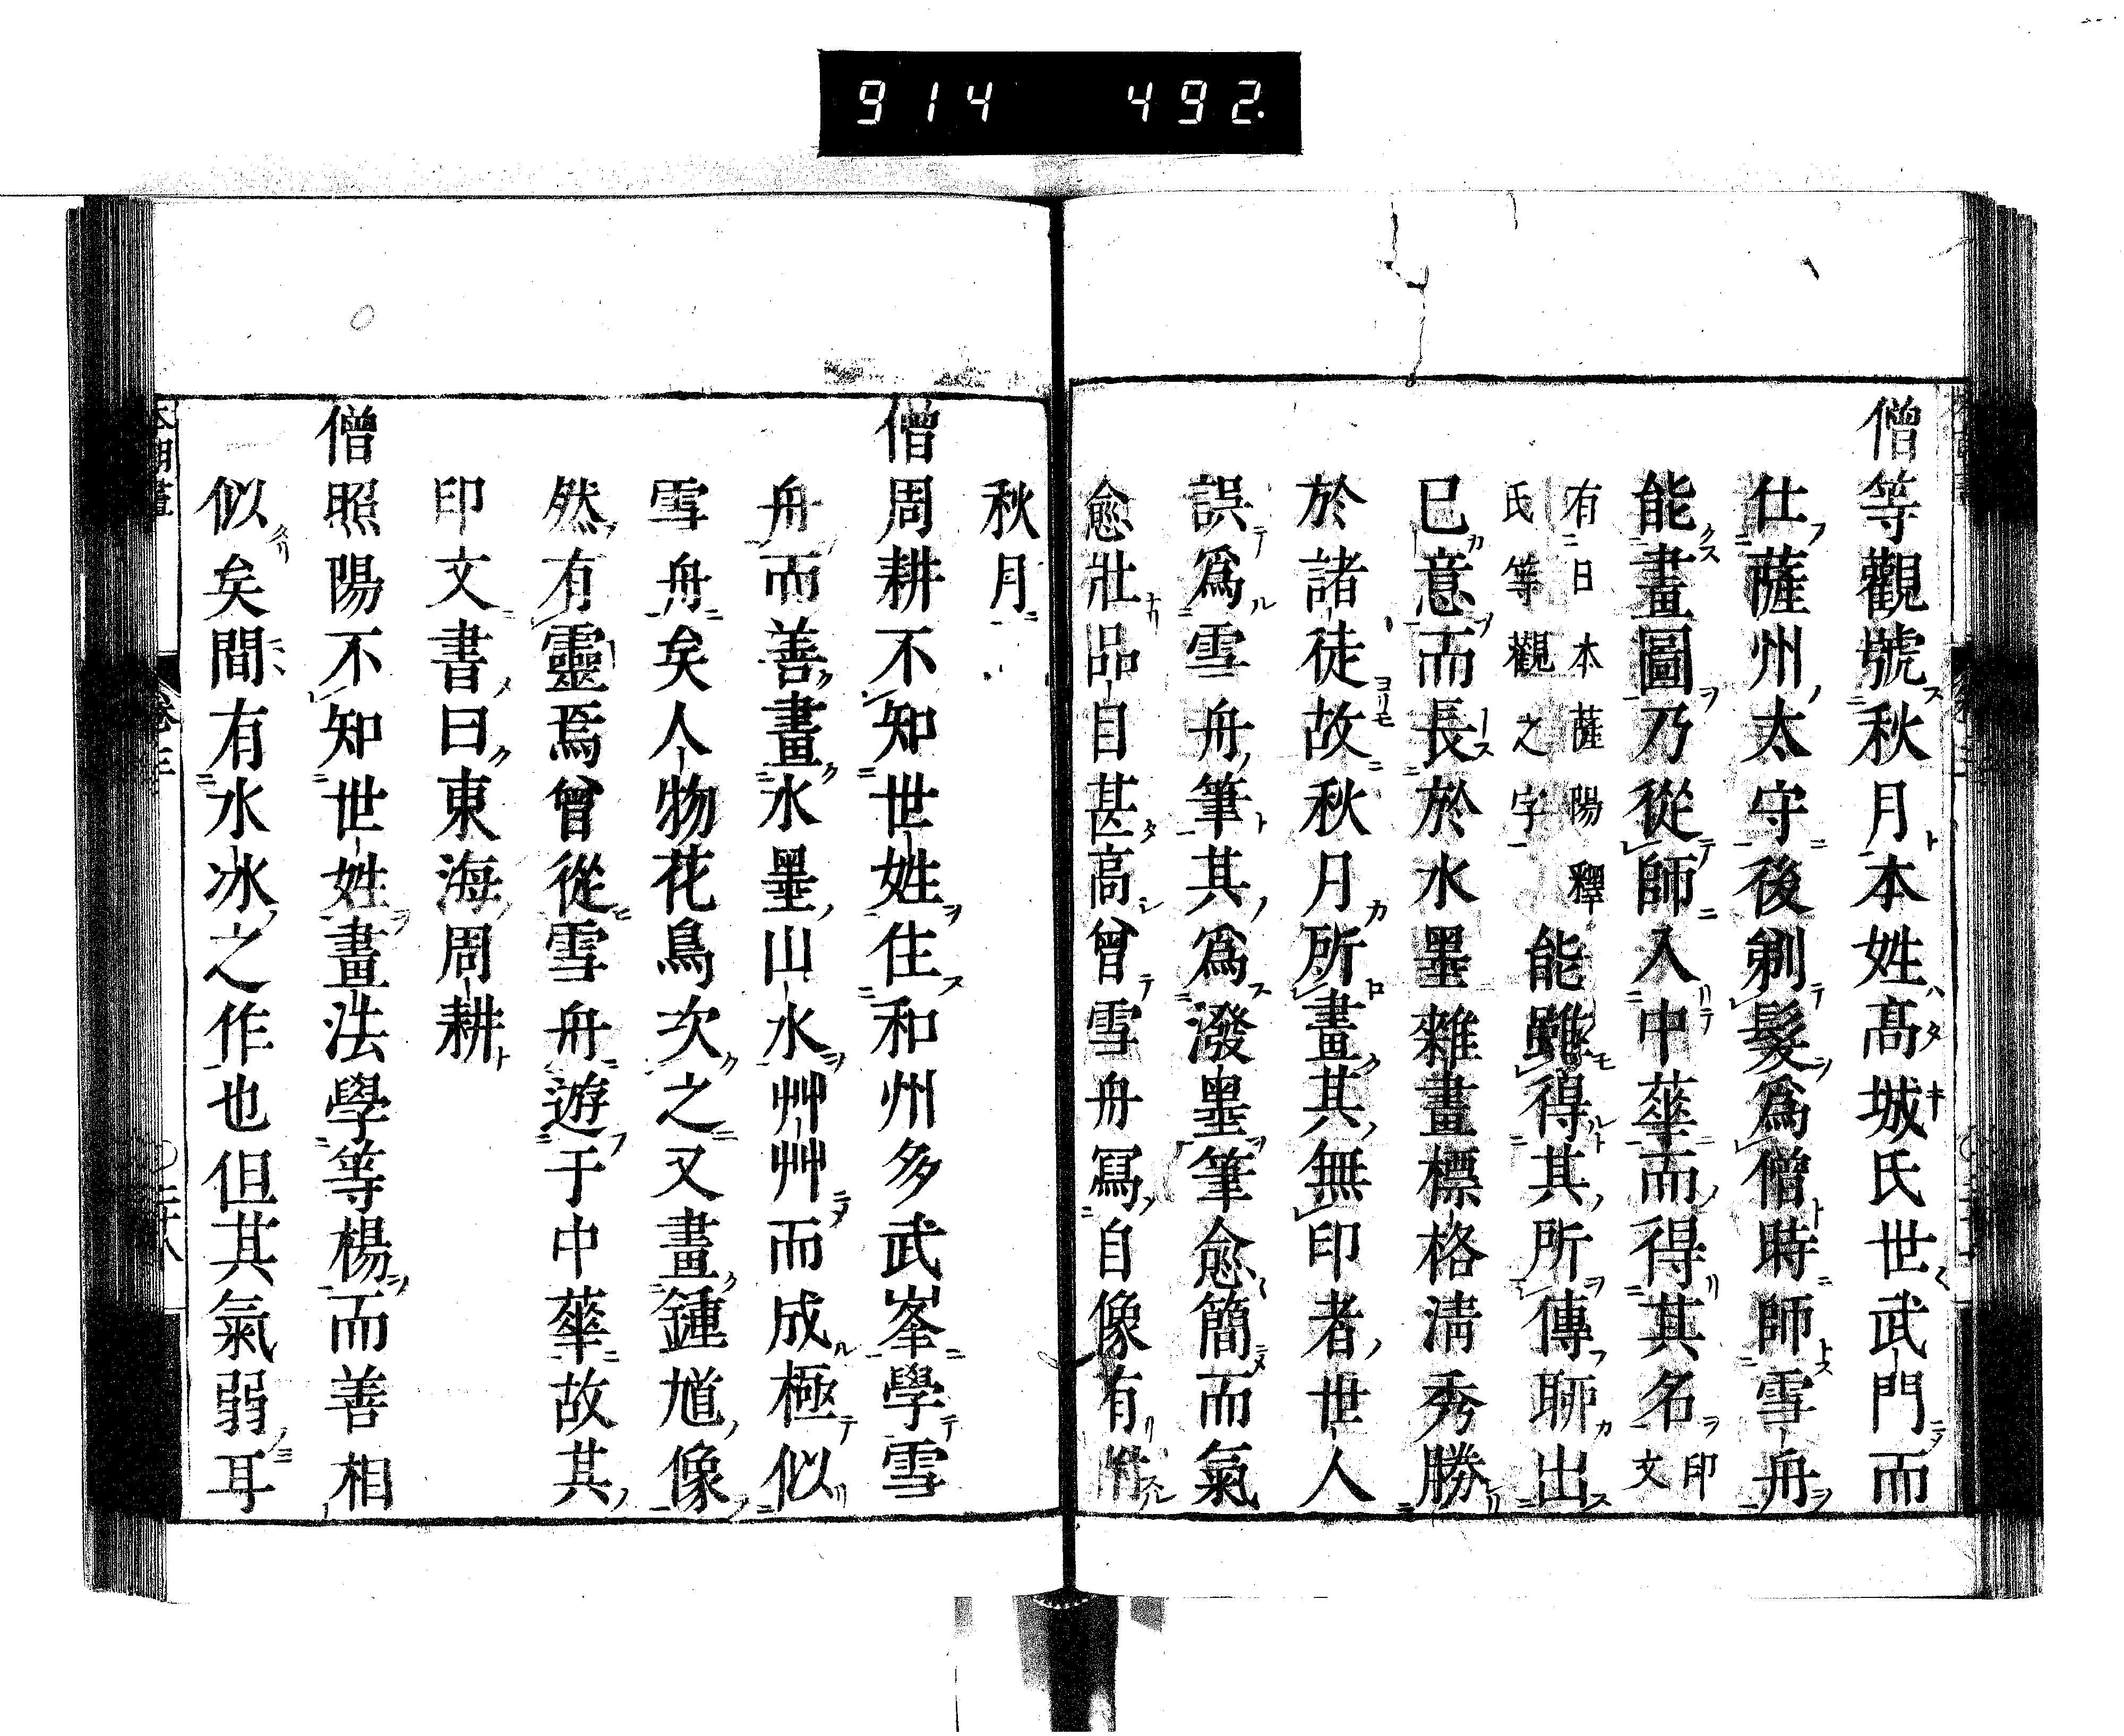 914 492.
僧等觀號秋月本姓高城氏世武門而
仕薩州太守後剃髮爲僧時師雪舟
能畫圖乃從師入中華而得其名印文
有日本薩陽釋氏等觀之字能雖得其所傳聊出
已意而長於水墨雜畫標格淸秀勝
於諸徒故秋月所畫其無印者世人
誤爲雪舟筆其爲潑墨筆愈簡而氣
愈壯品自甚高曾雪舟寫自像有附
秋月
僧周耕不知世姓住和州多武峯學雪
舟而善畫水墨山水艸艸而成極似
雪舟矣人物花鳥次之又畫鍾馗像
然有靈焉曾從雪舟遊于中華故其
印文書曰東海周耕
僧照陽不知世姓畫法學等楊而善相
似矣間有水冰之作也但其氣弱耳
本朝畫 卷三 二十八